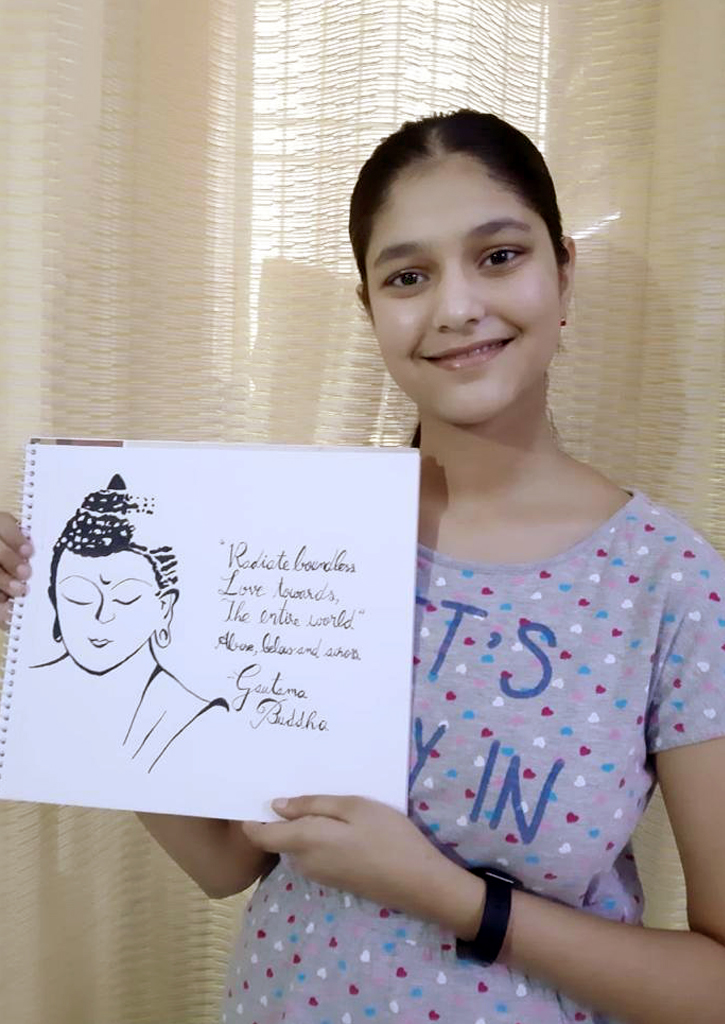 "Radiate boundless
Love towards,
The entire world"
Above, below and across
- Gautama
Buddha
T'S
Y IN